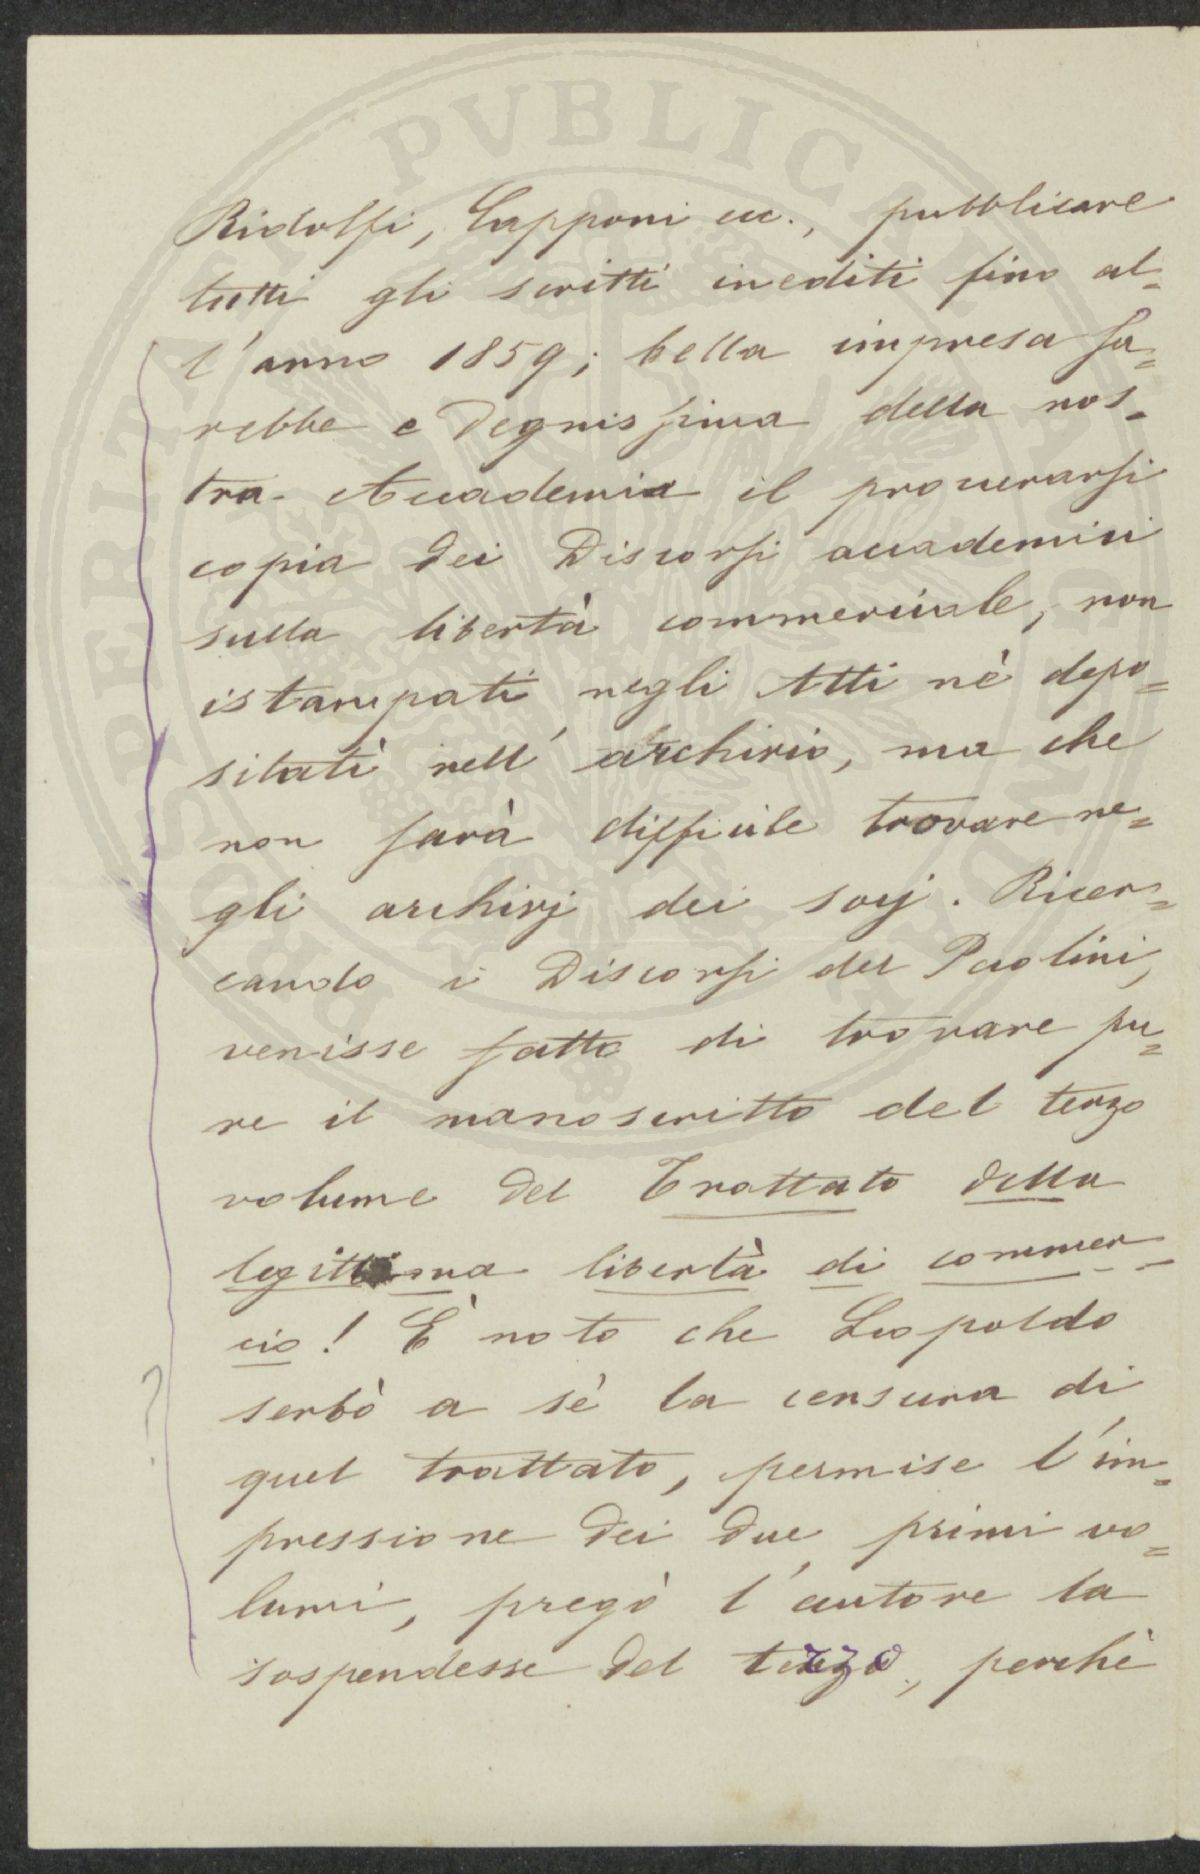 Ridolfi, Capponi ecc., pubblicare
tutti gli scritti inediti fino al=
l'anno 1859; bella impresa sa=
rebbe e degnissima della nos=
tra Accademia il procurarsi
copia dei Discorsi accademici
sulla libertà commerciale, non
istampati negli Atti nè depo=
sitati nell'archivio, ma che
non sarà difficile trovare ne=
gli archivj dei socj. Ricer=
cando i Discorsi del Paolini,
venisse fatto di trovare pu=
re il manoscritto del terzo
volume del Trattato della
legittima libertà di commer=
cio! È noto che Leopoldo
serbò a sè la censura di
quel trattato, permise l'im=
pressione dei due primi vo=
lumi, pregò l'autore la
sospendesse del terzo, perchè
?
PROSPERITATI PVBLICAE AVGENDAE